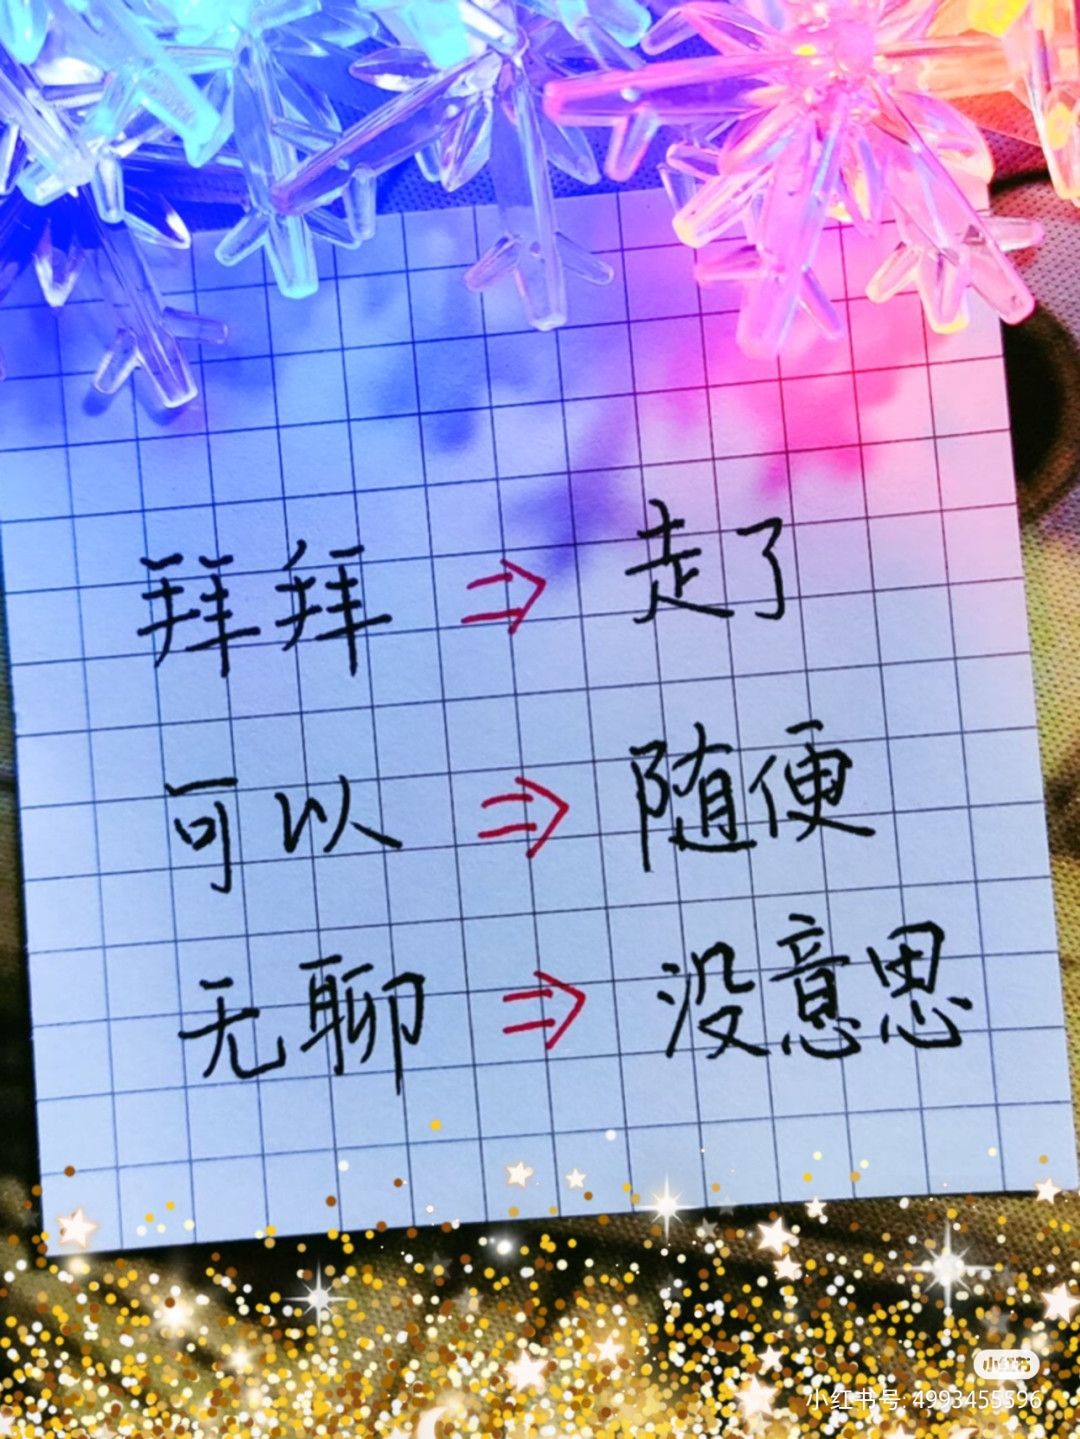 拜拜 ⇒ 走了
可以 ⇒ 随便
无聊 ⇒ 没意思
小红书
小红书号: 4993455596